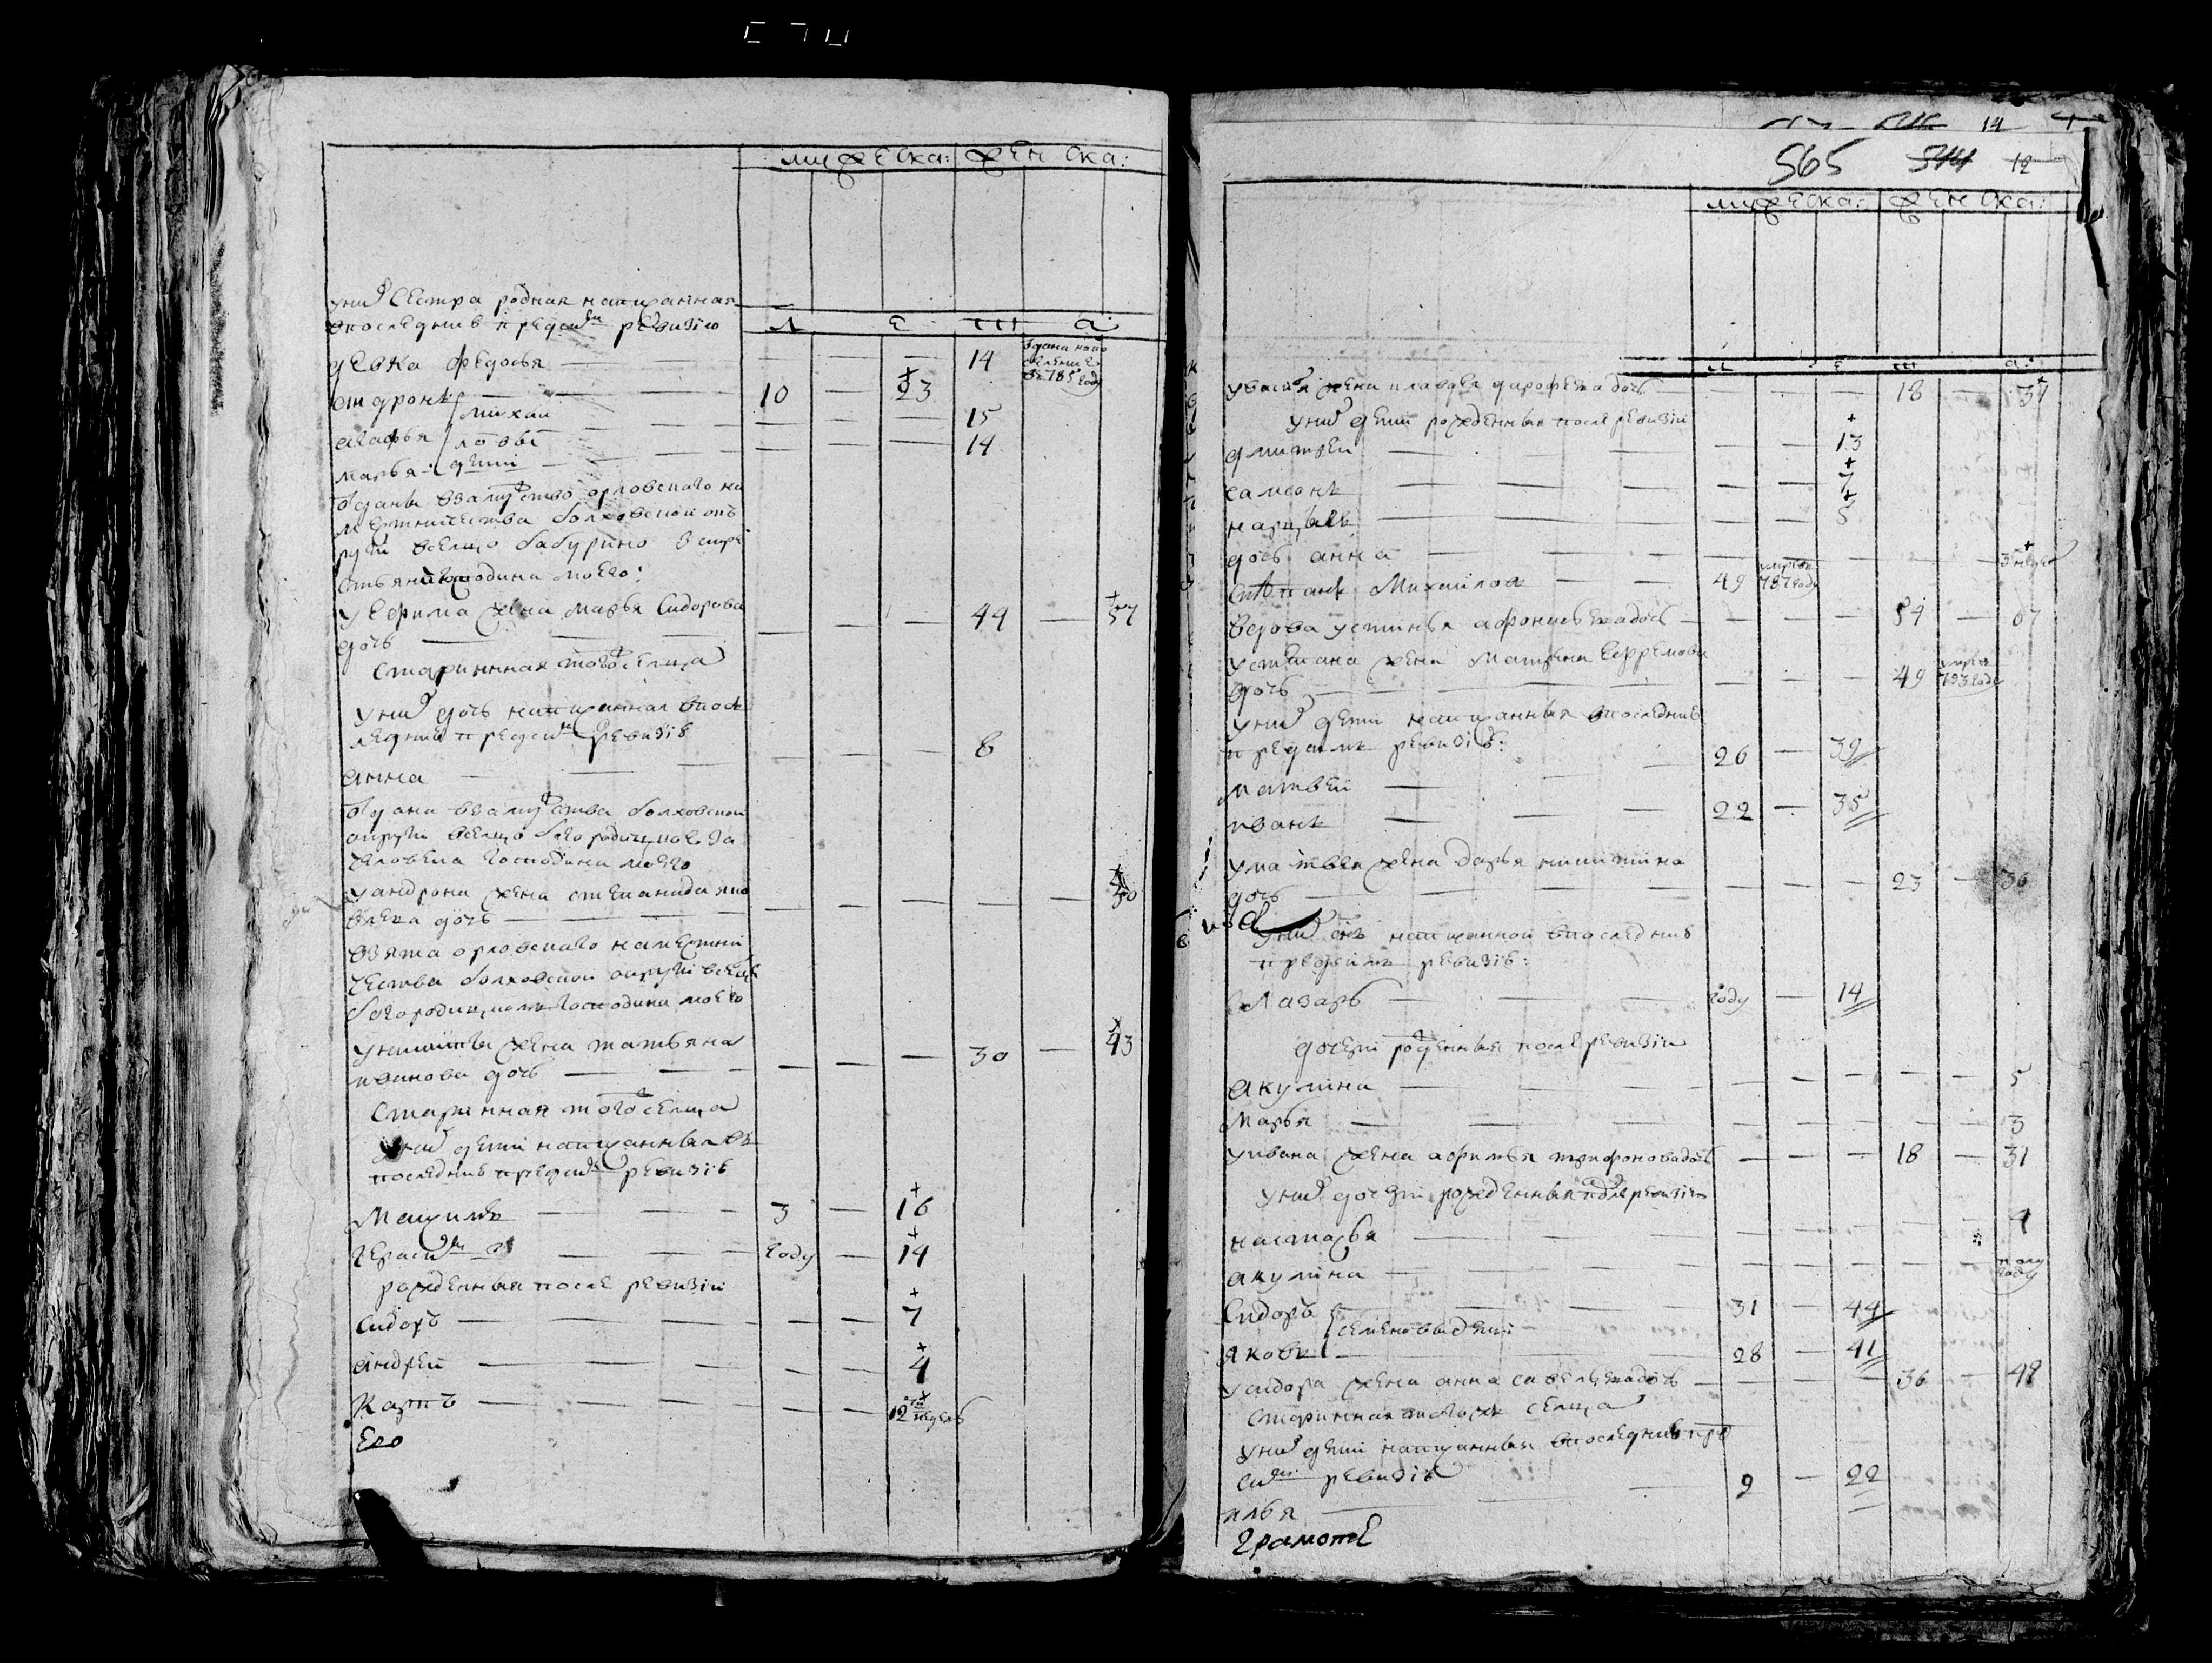 мужеска: женска:
у них сестра родная написанная
в последней пред сим ревизию
л е т а
девка федосья — 14 одана на по
селение
в 785 году
андронъ — 10 — 23
михаи
агафья — 15
ловы
марья дети — 14
отданы в замужство орловского на
местничества болховской окъ
руги в селцо бабурино
господина моего:
у ефима жена марья сидорова
дочь — 44 — 57
старинная того селца
у них дочь написанная в пос
ледней пред сим ревизiе
анна — 8
отдана в замужства болховской
округи в селцо богородицкое за
человека господина моего
у андрона жена степанида яко
влева дочь — 30
взята орловского наместни
чества болховской округи в селце
богородицкомъ господина моего
у никиты жена татьяна
иванова дочь — 30 — 43
старинная того селца
у них дети написанныя въ
последней пред сим ревизiе
Максимъ — 3 — 16
герасимъ — году — 14
рожденныя после ревизiи
сидоръ — 7
андрей — 4
карпъ — 12 недель
Его
14
565 544 12
мужеска: женска:
л е т а:
жена дарофеева дочь — 18 — 31
у них дети рожденныя после ревизiи
дмитрей — 13
самсонъ — 7
5
дочь анна — 3 недель
степанъ Михаилов — 49 умре в 787 году
вдова устинья афонасьева дочь — 54 — 67
у степана жена Матрена Ефремова
дочь — 49 умре в 793 году
у них дети написанныя в последней
пред симъ ревизiе:
матвей — 26 — 39
иванъ — 22 — 35
у матвея жена дарья никитина
дочь — 23 — 36
у них сын написанной в последней
пред симъ ревизiе:
Лазарь — году — 14
дочери рожденныя после ревизiи
акулина — 5
Марья — 3
у ивана жена афимья трифонова дочь — 18 — 31
у них дочери рожденныя после ревизiи
настасья — 4
акулина — полу
году
Сидоръ — 31 — 44
семеновы дети
яковъ — 28 — 41
у сидора жена анна савельева дочь — 36 — 48
старинная того ж селца
у них дети написанныя в последней пре
сим ревизiе
илья — 9 — 22
грамоте